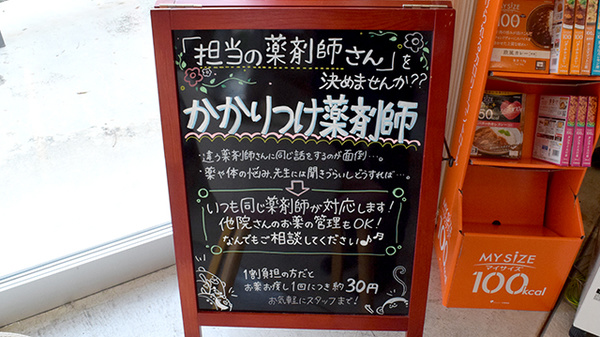 「担当の薬剤師さん」を
決めませんか??
かかりつけ薬剤師
・違う薬剤師さんに同じ話をするのが面倒…。
・薬や体の悩み、先生には聞きづらいしどうすれば…
いつも同じ薬剤師が対応します!
他院さんのお薬の管理もOK!
なんでもご相談してください♪
1割負担の方だと
お薬お渡し1回につき約30円
お気軽にスタッフまで!
100
50
MYSIZE
マイサイズ
100kcal